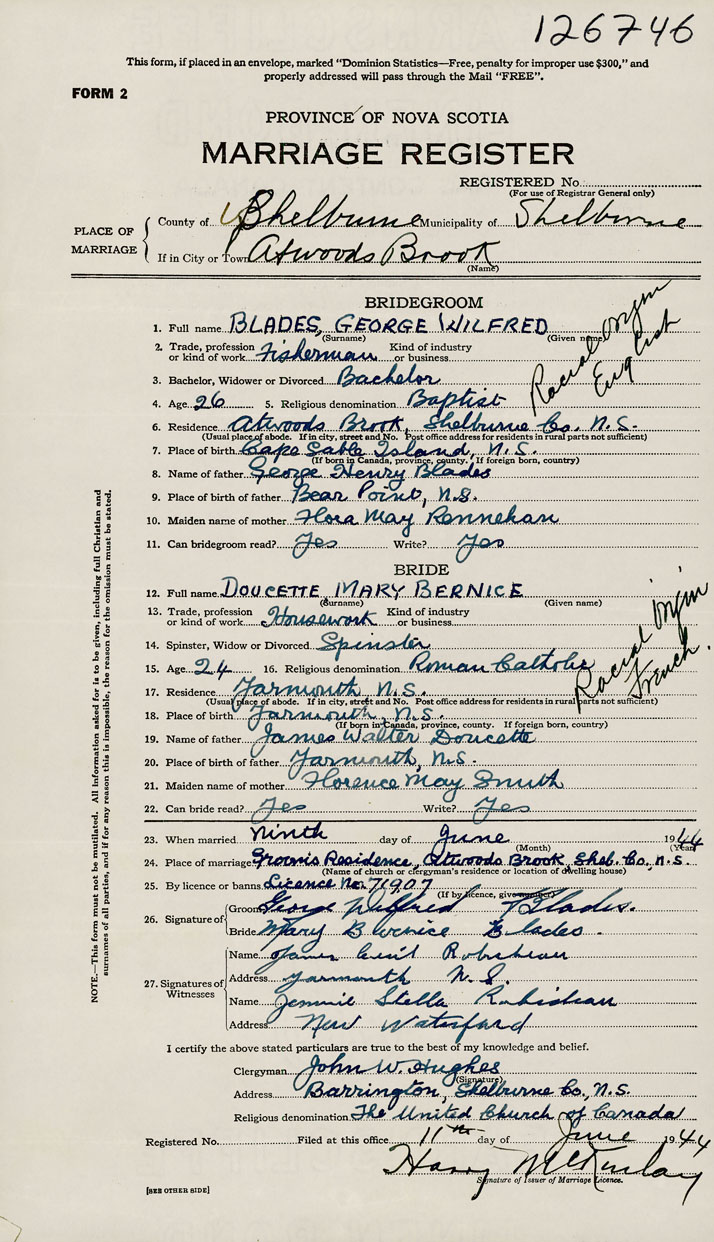 126746
This form, if placed in an envelope, marked "Dominion Statistics—Free, penalty for improper use $300," and
properly addressed will pass through the Mail "FREE".
FORM 2
PROVINCE OF NOVA SCOTIA
MARRIAGE REGISTER
REGISTERED No.
(For use of Registrar General only)
PLACE OF MARRIAGE
County of Shelburne Municipality of Shelburne
If in City or Town Atwoods Brook
(Name)
BRIDEGROOM
Racial Origin English
1. Full name BLADES, GEORGE WILFRED
(Surname) (Given name)
2. Trade, profession or kind of work Fisherman Kind of industry or business
3. Bachelor, Widower or Divorced Bachelor
4. Age 26 5. Religious denomination Baptist
6. Residence Atwoods Brook, Shelburne Co. N.S.
(Usual place of abode. If in city, street and No. Post office address for residents in rural parts not sufficient)
7. Place of birth Cape Sable Island, N.S.
(If born in Canada, province, county. If foreign born, country)
8. Name of father George Henry Blades
9. Place of birth of father Bear Point, N.S.
10. Maiden name of mother Flora May Rennehan
11. Can bridegroom read? Yes Write? Yes
BRIDE
Racial Origin French.
12. Full name DOUCETTE, MARY BERNICE
(Surname) (Given name)
13. Trade, profession or kind of work Housework Kind of industry or business
14. Spinster, Widow or Divorced Spinster
15. Age 24 16. Religious denomination Roman Catholic
17. Residence Yarmouth, N.S.
(Usual place of abode. If in city, street and No. Post office address for residents in rural parts not sufficient)
18. Place of birth Yarmouth, N.S.
(If born in Canada, province, county. If foreign born, country)
19. Name of father James Walter Doucette
20. Place of birth of father Yarmouth, N.S.
21. Maiden name of mother Florence May Smith
22. Can bride read? Yes Write? Yes
23. When married Ninth day of June 1944
(Month) (Year)
24. Place of marriage Groom's Residence, Atwoods Brook, Shel. Co., N.S.
(Name of church or clergyman's residence or location of dwelling house)
25. By licence or banns Licence No. 71907
(If by licence, give number)
26. Signature of
Groom George Wilfred Blades.
Bride Mary Bernice Blades.
27. Signatures of Witnesses
Name James Robicheau
Address Yarmouth N.S.
Name Jennie Stella
Address New Waterford
I certify the above stated particulars are true to the best of my knowledge and belief.
Clergyman John W. Hughes
(Signature)
Address Barrington, Shelburne Co., N.S.
Religious denomination The United Church of Canada
Registered No. Filed at this office 11th day of June 1944
Harry McKinlay
Signature of Issuer of Marriage Licence.
[SEE OTHER SIDE]
NOTE.—This form must not be mutilated. All information asked for is to be given, including full Christian and
surnames of all parties, and if for any reason this is impossible, the reason for the omission must be stated.